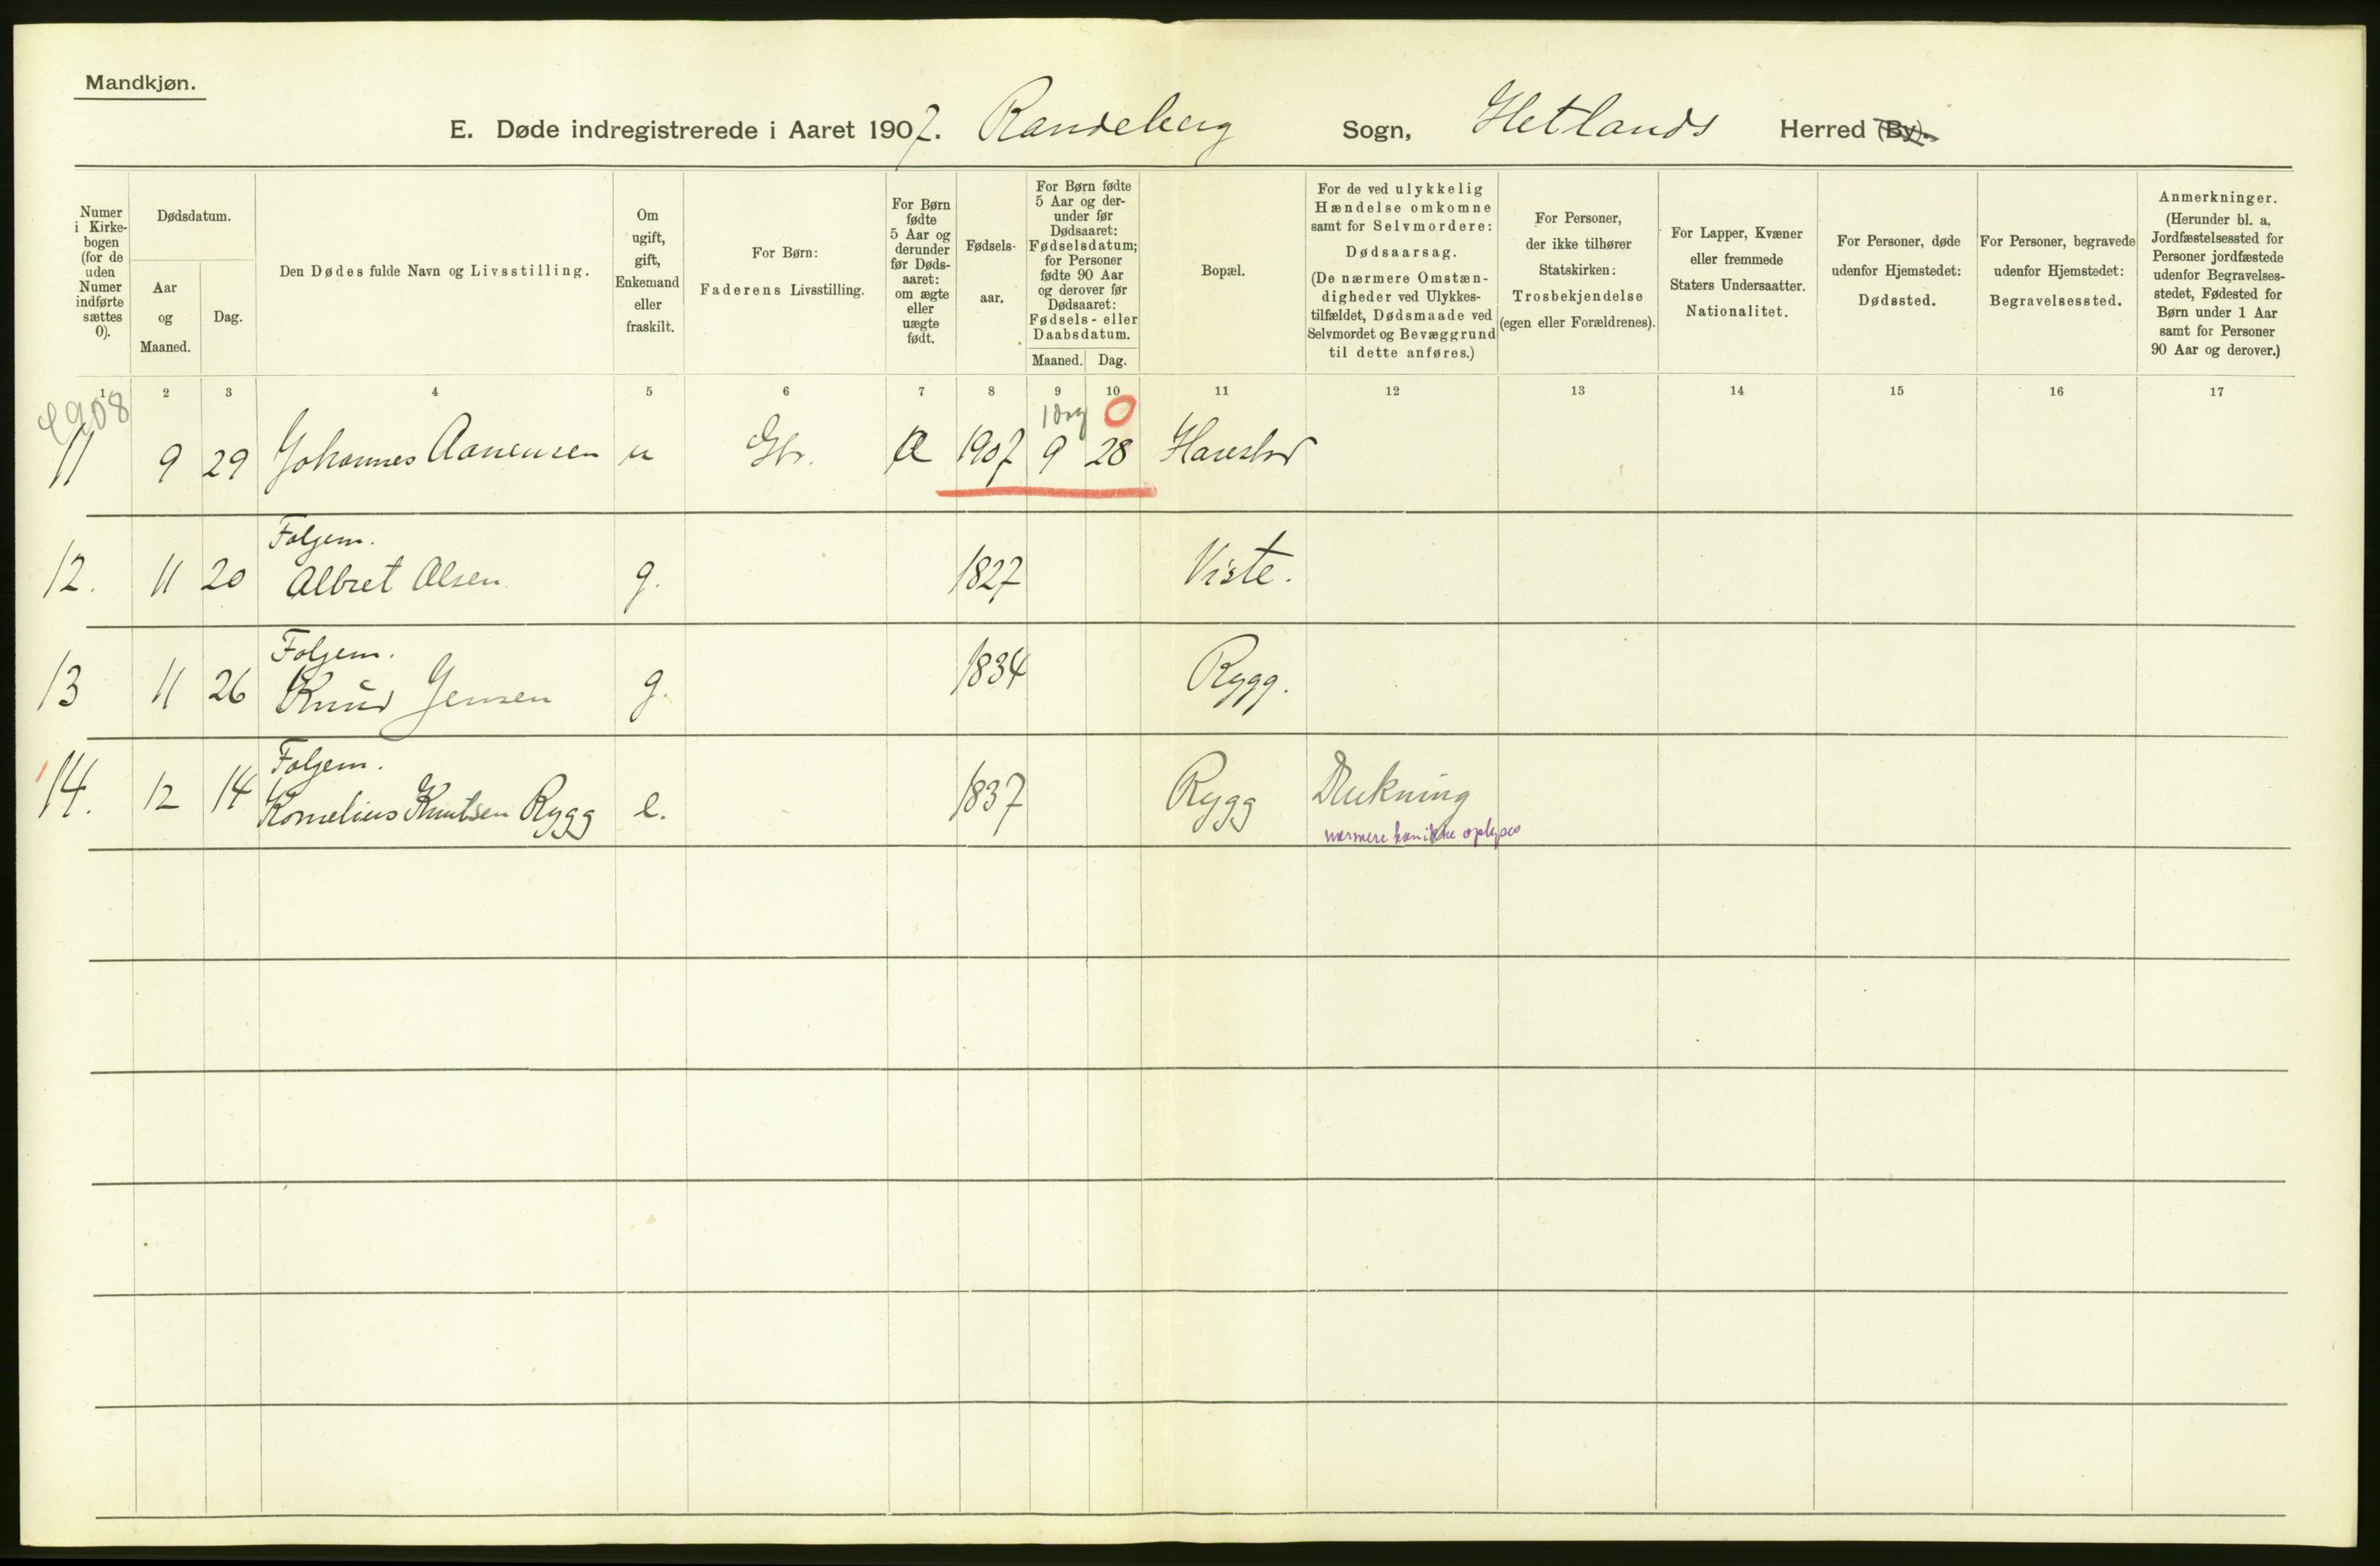 Mandkjøn.
E. Døde indregistrerede i Aaret 1907. Randeberg Sogn, Hetlands Herred (By).
Numer i Kirkebogen (for de uden Numer indførte sættes 0).
Dødsdatum.
Aar og Maaned.
Dag.
Den Dødes fulde Navn og Livsstilling.
Om ugift, gift, Enkemand eller fraskilt.
For Børn: Faderens Livsstilling.
For Børn fødte 5 Aar og derunder før Dødsaaret: om ægte eller uægte født.
Fødselsaar.
For Børn fødte 5 Aar og derunder før Dødsaaret: Fødselsdatum; for Personer fødte 90 Aar og derover før Dødsaaret: Fødsels- eller Daabsdatum.
Maaned. Dag.
Bopæl.
For de ved ulykkelig Hændelse omkomne samt for Selvmordere: Dødsaarsag. (De nærmere Omstændigheder ved Ulykkestilfældet, Dødsmaade ved Selvmordet og Bevæggrund til dette anføres.)
For Personer, der ikke tilhører Statskirken: Trosbekjendelse (egen eller Forældrenes).
For Lapper, Kvæner eller fremmede Staters Undersaatter. Nationalitet.
For Personer, døde udenfor Hjemstedet: Dødssted.
For Personer, begravede udenfor Hjemstedet: Begravelsessted.
Anmerkninger. (Herunder bl. a. Jordfæstelsessted for Personer jordfæstede udenfor Begravelsesstedet, Fødested for Børn under 1 Aar samt for Personer 90 Aar og derover.)
1 2 3 4 5 6 7 8 9 10 11 12 13 14 15 16 17
1 dag 0
11 9 29 Johannes Aanensen u Gbr. Æ 1907 9 28 Harestad
Folgem.
12. 11 20 Albret Olsen g. 1827 Viste.
Folgem.
13 11 26 Knud Jensen g. 1834 Rygg.
Folgem.
14. 12 14 Kornelius Knutsen Rygg e. 1837 Rygg Drukning
nærmere kan ikke oplyses